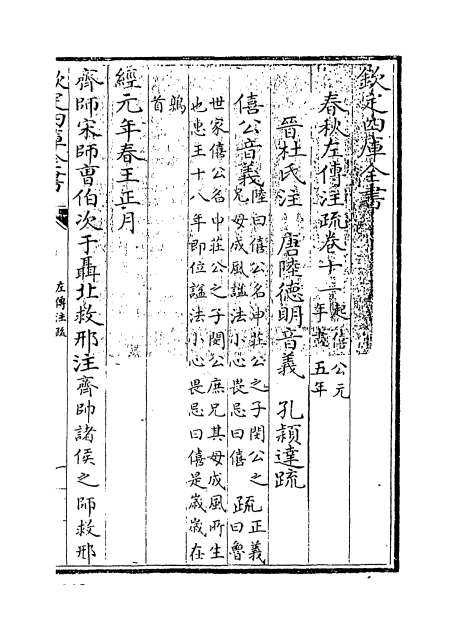 欽定四庫全書
春秋左傳注疏卷十一
起僖公元
年盡五年
晉杜氏注 唐陸德明音義 孔穎達疏
僖公音義
陸曰僖公名申莊公之子閔公之
兄母成風諡法小心畏忌曰僖
疏
正義
曰魯
世家僖公名申莊公之子閔公庶兄其母成風所生
也惠王十八年即位諡法小心畏忌曰僖是歲歲在
鶉
首
經元年春王正月
齊師宋師曹伯次于聶北救邢注齊帥諸侯之師救邢
欽定四庫全書
左傳注疏
一